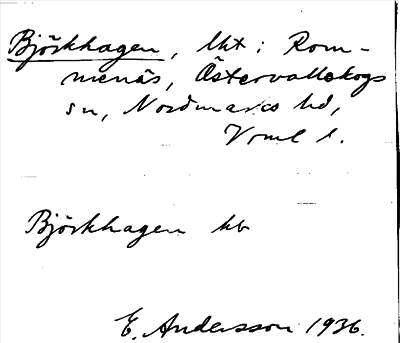 Björkhagen, lht i Rom-
menäs, Östervallskogs
sn, Nordmarks hd,
Vrml l.
Björkhagen hb
E. Andersson 1936.